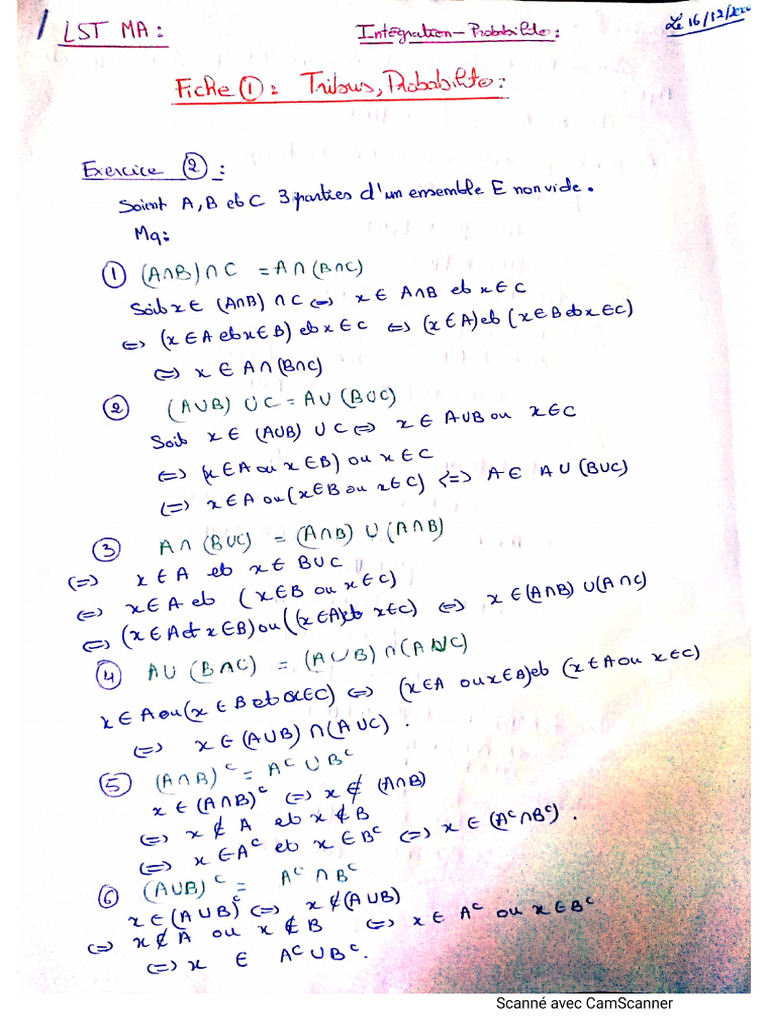 LST MA :
Intégration - Probabilité :
Le 16/12/
Fiche ① : Tribus, Probabilité :
Exercice ② :
Soient A, B et C 3 parties d'un ensemble E non vide.
Mq:
① (A∩B)∩C = A∩(B∩C)
Soit x ∈ (A∩B) ∩ C ⇔ x ∈ A∩B et x ∈ C
⇔ (x ∈ A et x ∈ B) et x ∈ C ⇔ (x ∈ A) et (x ∈ B et x ∈ C)
⇔ x ∈ A ∩ (B∩C)
② (A∪B) ∪ C = A∪ (B∪C)
Soit x ∈ (A∪B) ∪ C ⇔ x ∈ A∪B ou x ∈ C
⇔ (x ∈ A ou x ∈ B) ou x ∈ C
⇔ x ∈ A ou (x ∈ B ou x ∈ C) ⇔ A ∈ A ∪ (B∪C)
③ A ∩ (B∪C) = (A∩B) ∪ (A∩B)
⇔ x ∈ A et x ∈ B∪C
⇔ x ∈ A et (x ∈ B ou x ∈ C)
⇔ (x ∈ A et x ∈ B) ou ((x ∈ A) et x ∈ C) ⇔ x ∈ (A∩B) ∪ (A∩C)
④ A∪ (B∩C) = (A∪B) ∩ (A∪C)
x ∈ A ou (x ∈ B et x ∈ C) ⇔ (x ∈ A ou x ∈ B) et (x ∈ A ou x ∈ C)
⇔ x ∈ (A∪B) ∩ (A∪C).
⑤ (A∩B)ᶜ = Aᶜ ∪ Bᶜ
x ∈ (A∩B)ᶜ ⇔ x ∉ (A∩B)
⇔ x ∉ A et x ∉ B
⇔ x ∈ Aᶜ et x ∈ Bᶜ ⇔ x ∈ (Aᶜ∩Bᶜ).
⑥ (A∪B)ᶜ = Aᶜ ∩ Bᶜ
x ∈ (A∪B)ᶜ ⇔ x ∉ (A∪B)
⇔ x ∉ A ou x ∉ B ⇔ x ∈ Aᶜ ou x ∈ Bᶜ
⇔ x ∈ Aᶜ ∪ Bᶜ.
Scanné avec CamScanner